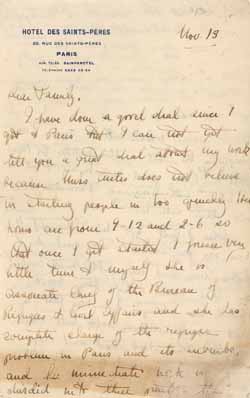 HOTEL DES SAINTS-PÈRES
65, RUE DES SAINTS-PÈRES
PARIS
Nov. 13
Dear Family,
I have done a good deal since I
got to Paris but I can not yet
tell you a great deal about my work
because Miss does not believe
in starting people in too quickly. Her
hours are from 9-12 and 2-6 so
that once I get started I fear very
little time to myself. She is
associate chief of the Bureau of
Refugees & and she has
complete charge of the refugee
problem in Paris and its
and her immediate work is
divided into three parts